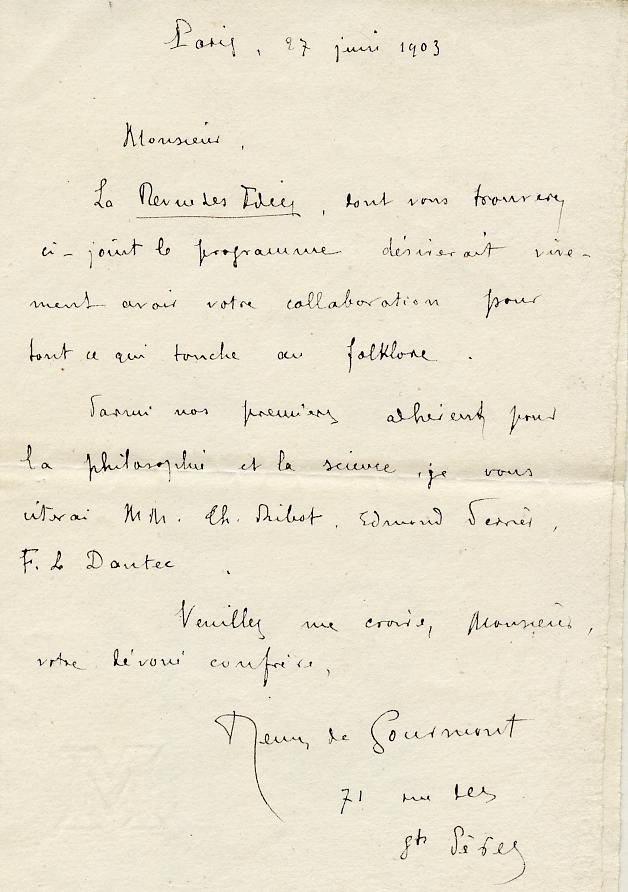 Paris, 27 juin 1903
Monsieur,
La Revue des Idées, dont vous trouverez
ci-joint le programme désirerait vive-
ment avoir votre collaboration pour
tout ce qui touche au folklore.
Parmi nos premiers adhérents pour
la philosophie et la science, je vous
citerai MM. Th. Ribot, Edmond Perrier,
F. Le Dantec.
Veuillez me croire, Monsieur,
votre dévoué confrère,
Remy de Gourmont
71 rue des
Sts Pères